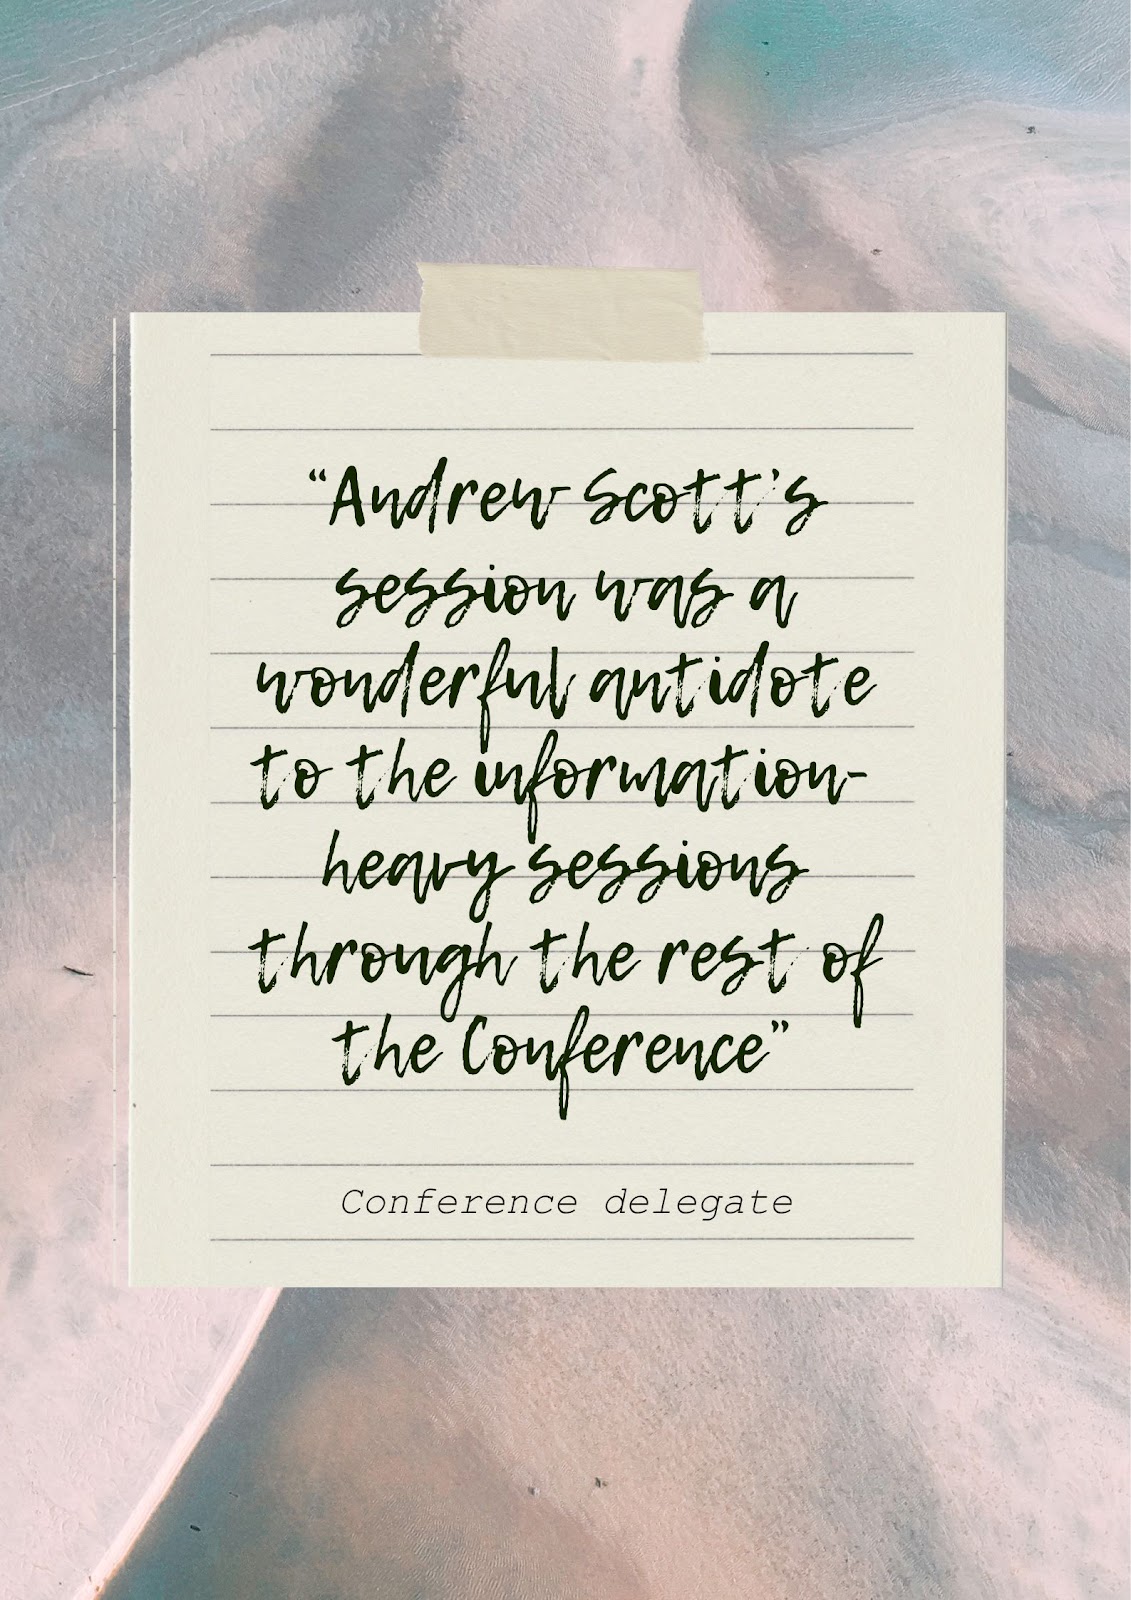 “Andrew Scott's
session was a
wonderful antidote
to the information-
heavy sessions
through the rest of
the Conference”
Conference delegate